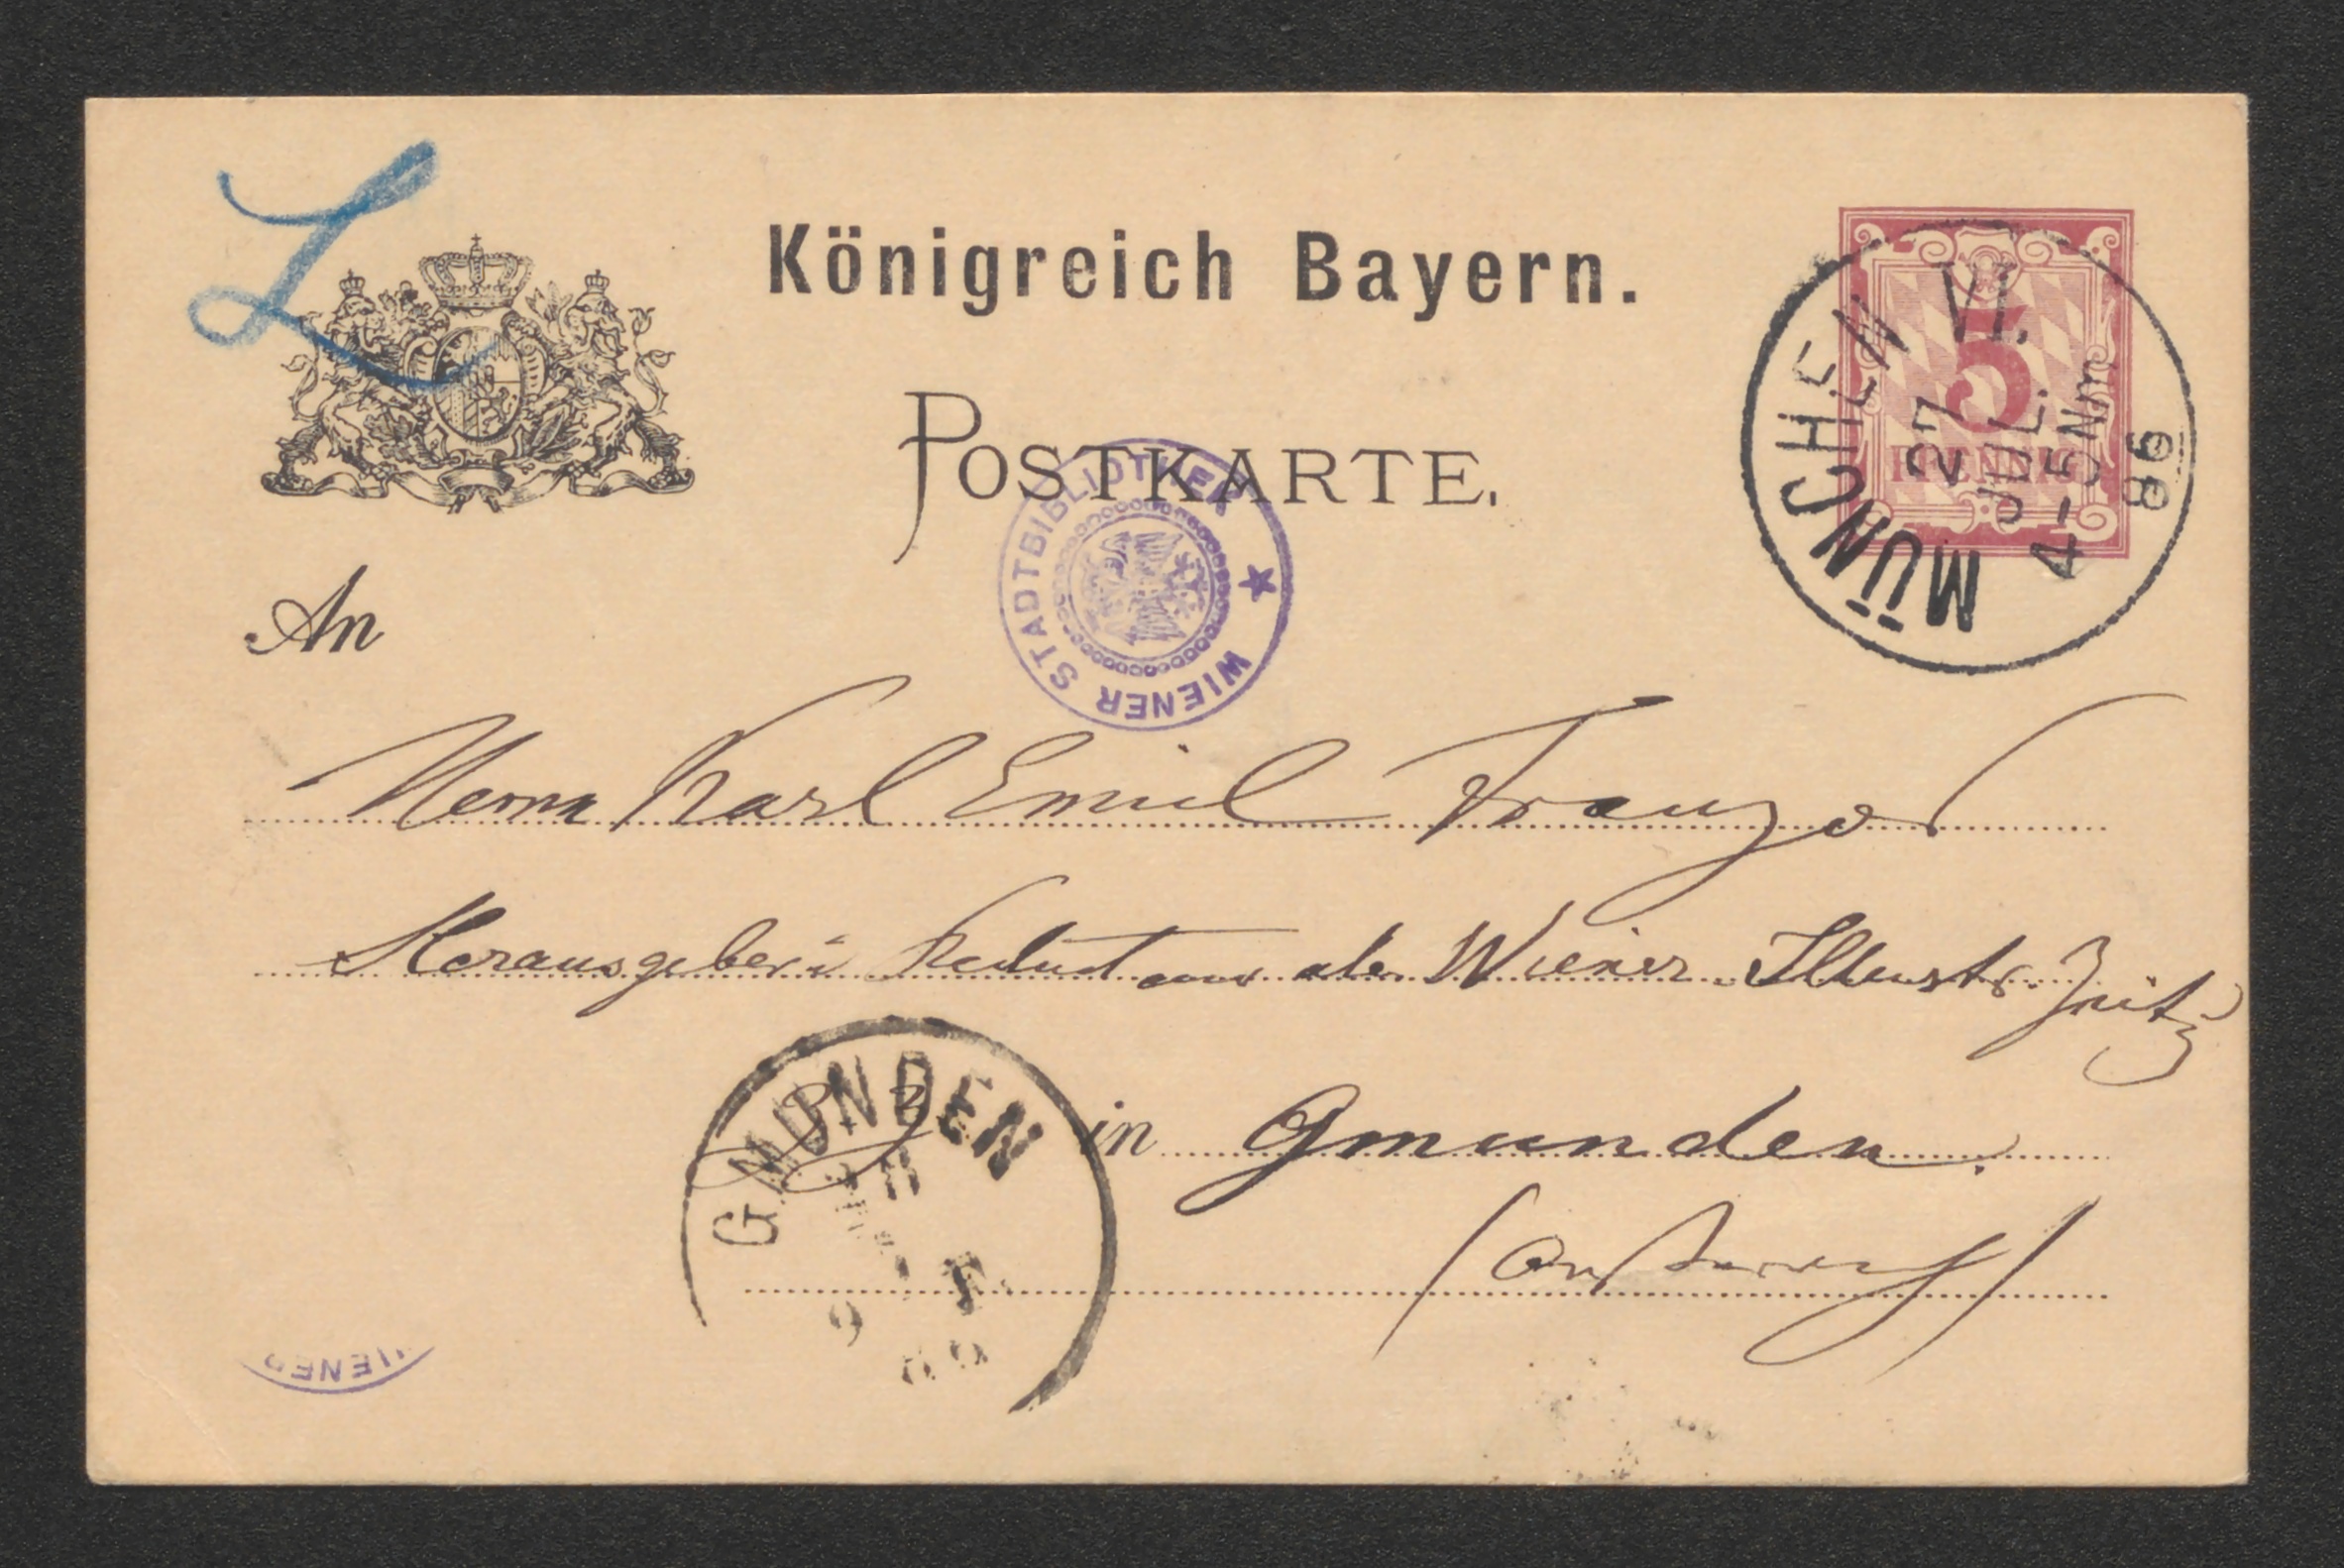 Königreich Bayern.
POSTKARTE.
5
PFENNIG
MÜNCHEN VI.
27
JUL.
4-5Nm
86
WIENER STADTBIBLIOTHEK
An
Herrn Karl Emil Franzos
Herausgeber u Redacteur der Wiener Illustr. Zeitg
p. Z.
in Gmunden.
(Oesterreich)
GMUNDEN
WIENER